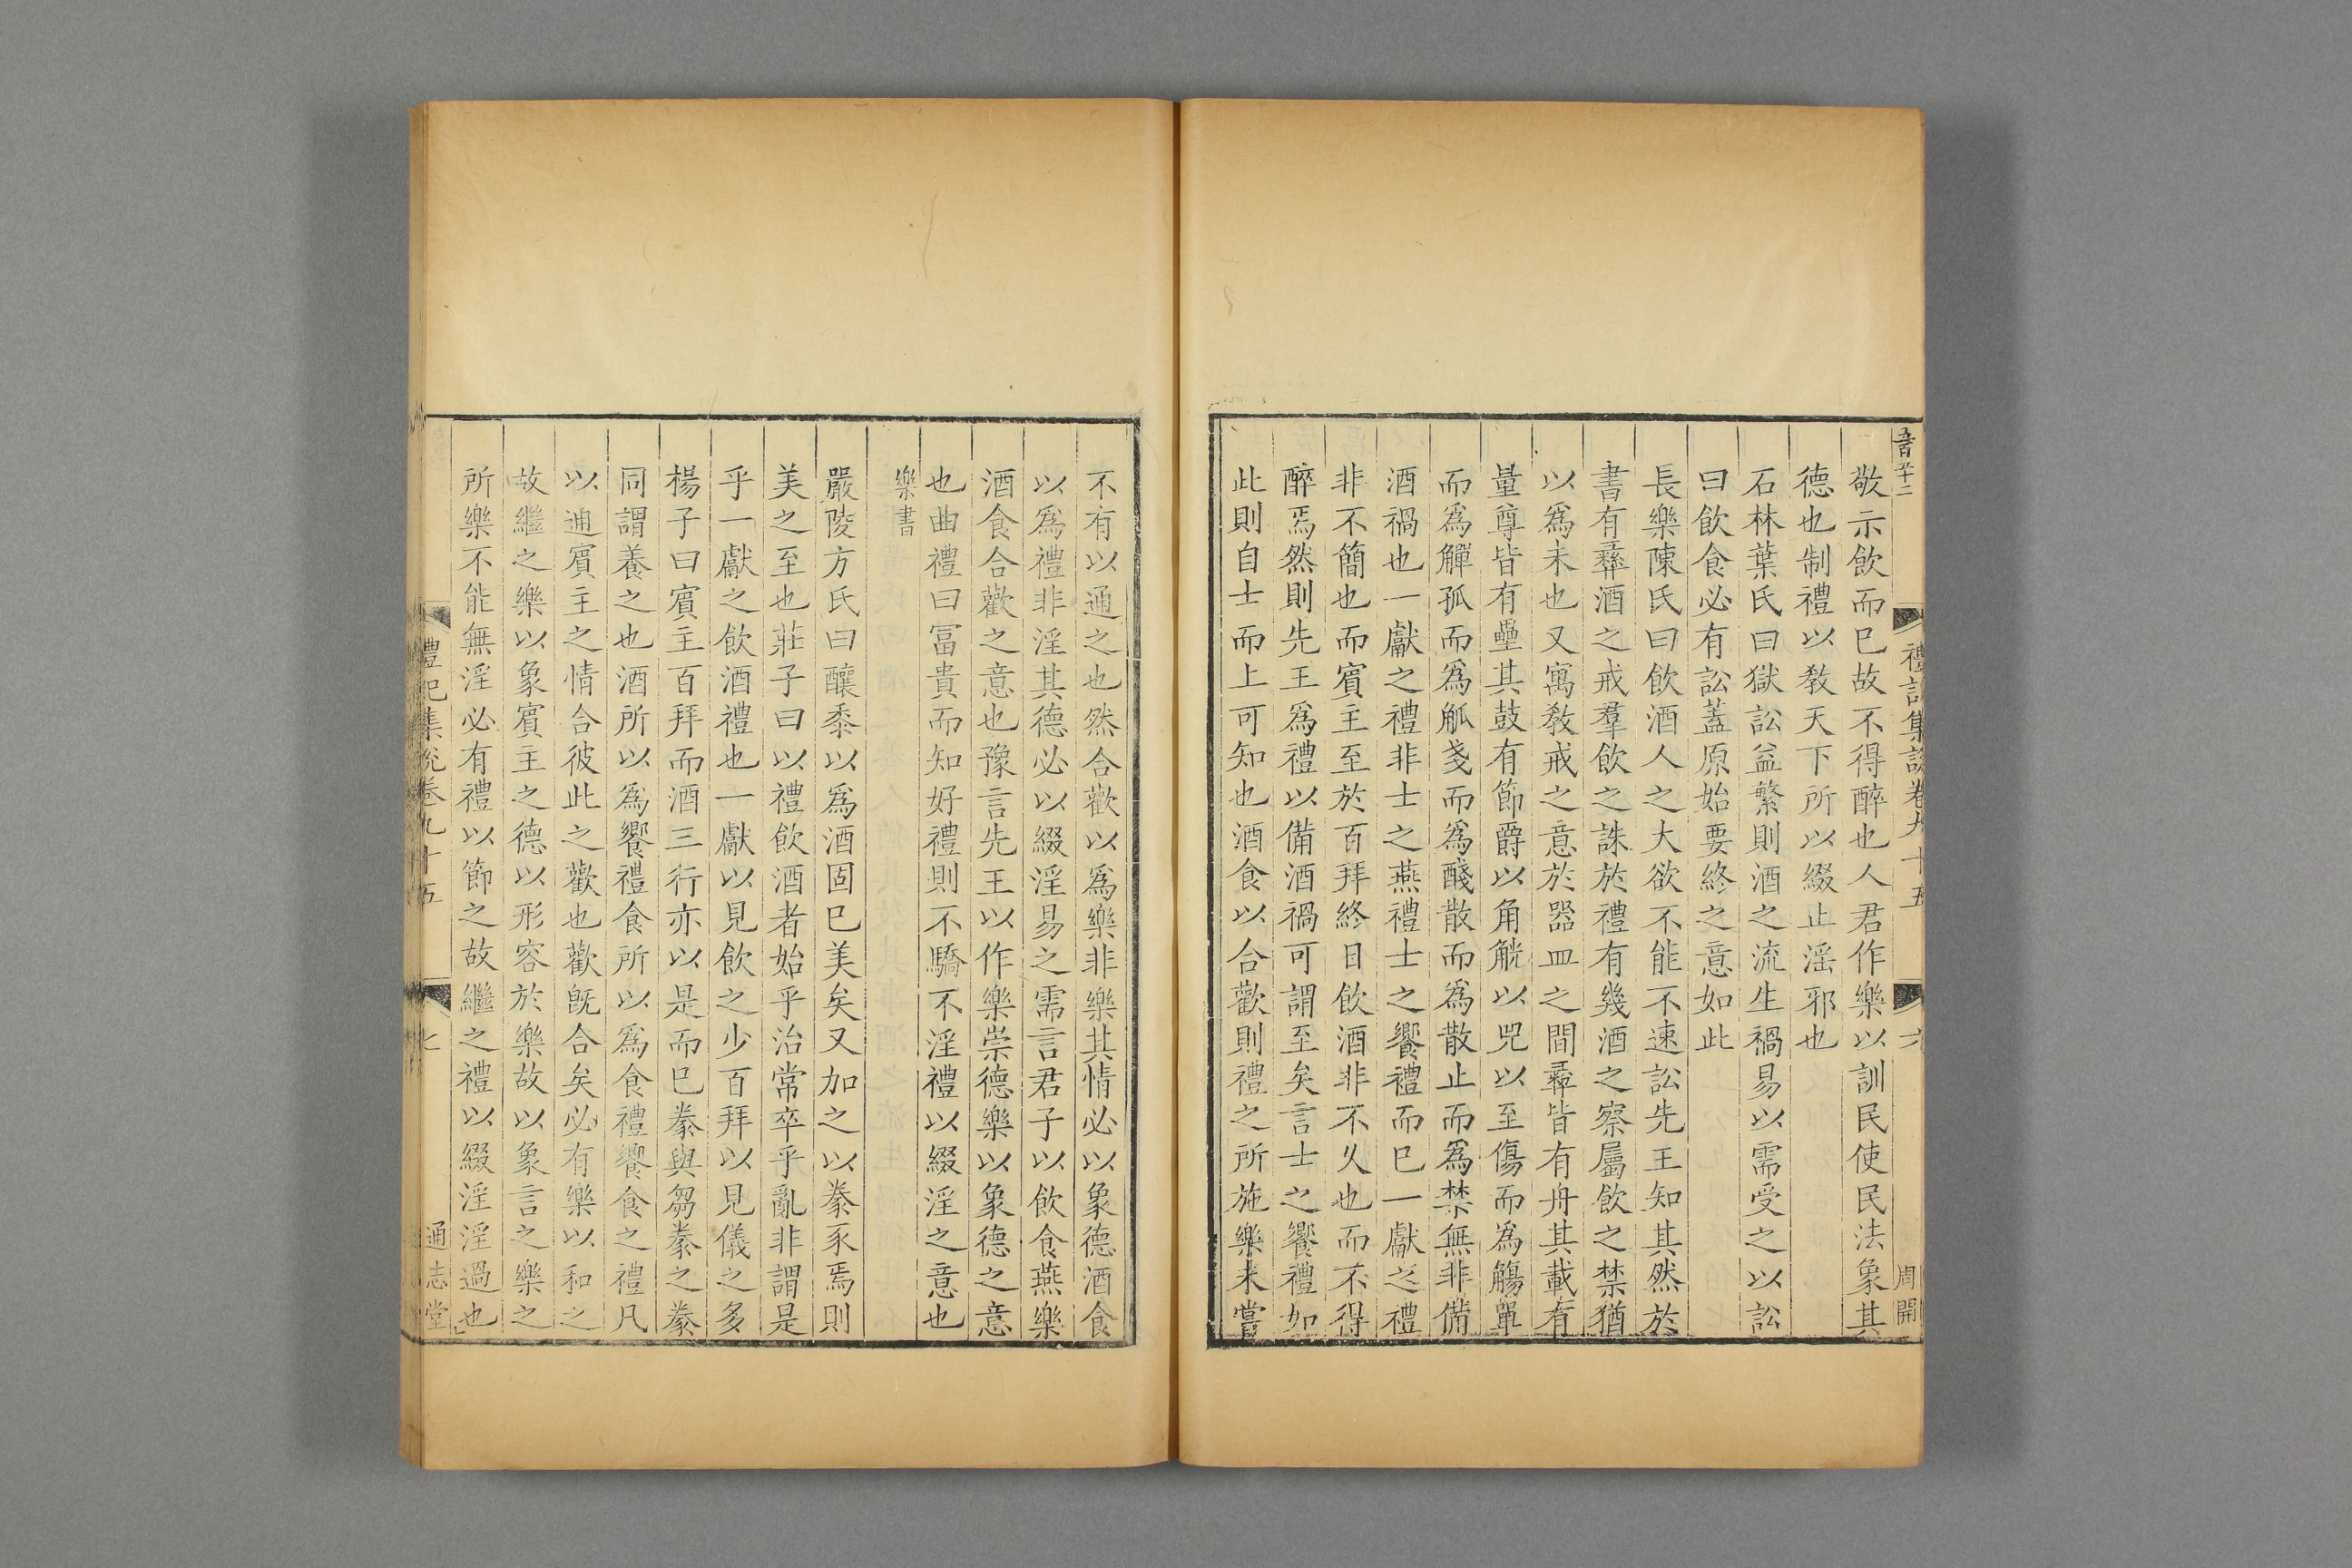 禮記集說卷九十五
六
周開
敬示飲而巳故不得醉也人君作樂以訓民使民法象其
德也制禮以敎天下所以綴止淫邪也
石林葉氏曰獄訟益繁則酒之流生禍易以需受之以訟
曰飲食必有訟蓋原始要終之意如此
長樂陳氏曰飲酒人之大欲不能不速訟先王知其然於
書有彝酒之戒羣飲之誅於禮有幾酒之察屬飲之禁猶
以爲未也又寓敎戒之意於器皿之間彛皆有舟其載有
量尊皆有罍其鼓有節爵以角觥以兕以至傷而爲觴單
而爲觶孤而爲觚戔而爲醆散而爲散止而爲禁無非備
酒禍也一獻之禮非士之燕禮士之饗禮而巳一獻之禮
非不簡也而賔主至於百拜終日飲酒非不久也而不得
醉焉然則先王爲禮以備酒禍可謂至矣言士之饗禮如
此則自士而上可知也酒食以合歡則禮之所施樂未嘗
不有以通之也然合歡以爲樂非樂其情必以象德酒食
以爲禮非淫其德必以綴淫易之需言君子以飲食燕樂
酒食合歡之意也豫言先王以作樂崇德樂以象德之意
也曲禮曰冨貴而知好禮則不驕不淫禮以綴淫之意也
樂書
嚴陵方氏曰釀黍以爲酒固巳美矣又加之以豢豕焉則
美之至也莊子曰以禮飲酒者始乎治常卒乎亂非謂是
乎一獻之飲酒禮也一獻以見飲之少百拜以見儀之多
楊子曰賔主百拜而酒三行亦以是而巳豢與芻豢之豢
同謂養之也酒所以爲饗禮食所以爲食禮饗食之禮凡
以通賔主之情合彼此之歡也歡旣合矣必有樂以和之
故繼之樂以象賔主之德以形容於樂故以象言之樂之
所樂不能無淫必有禮以節之故繼之禮以綴淫淫過也
禮記集說卷九十五
七
通志堂